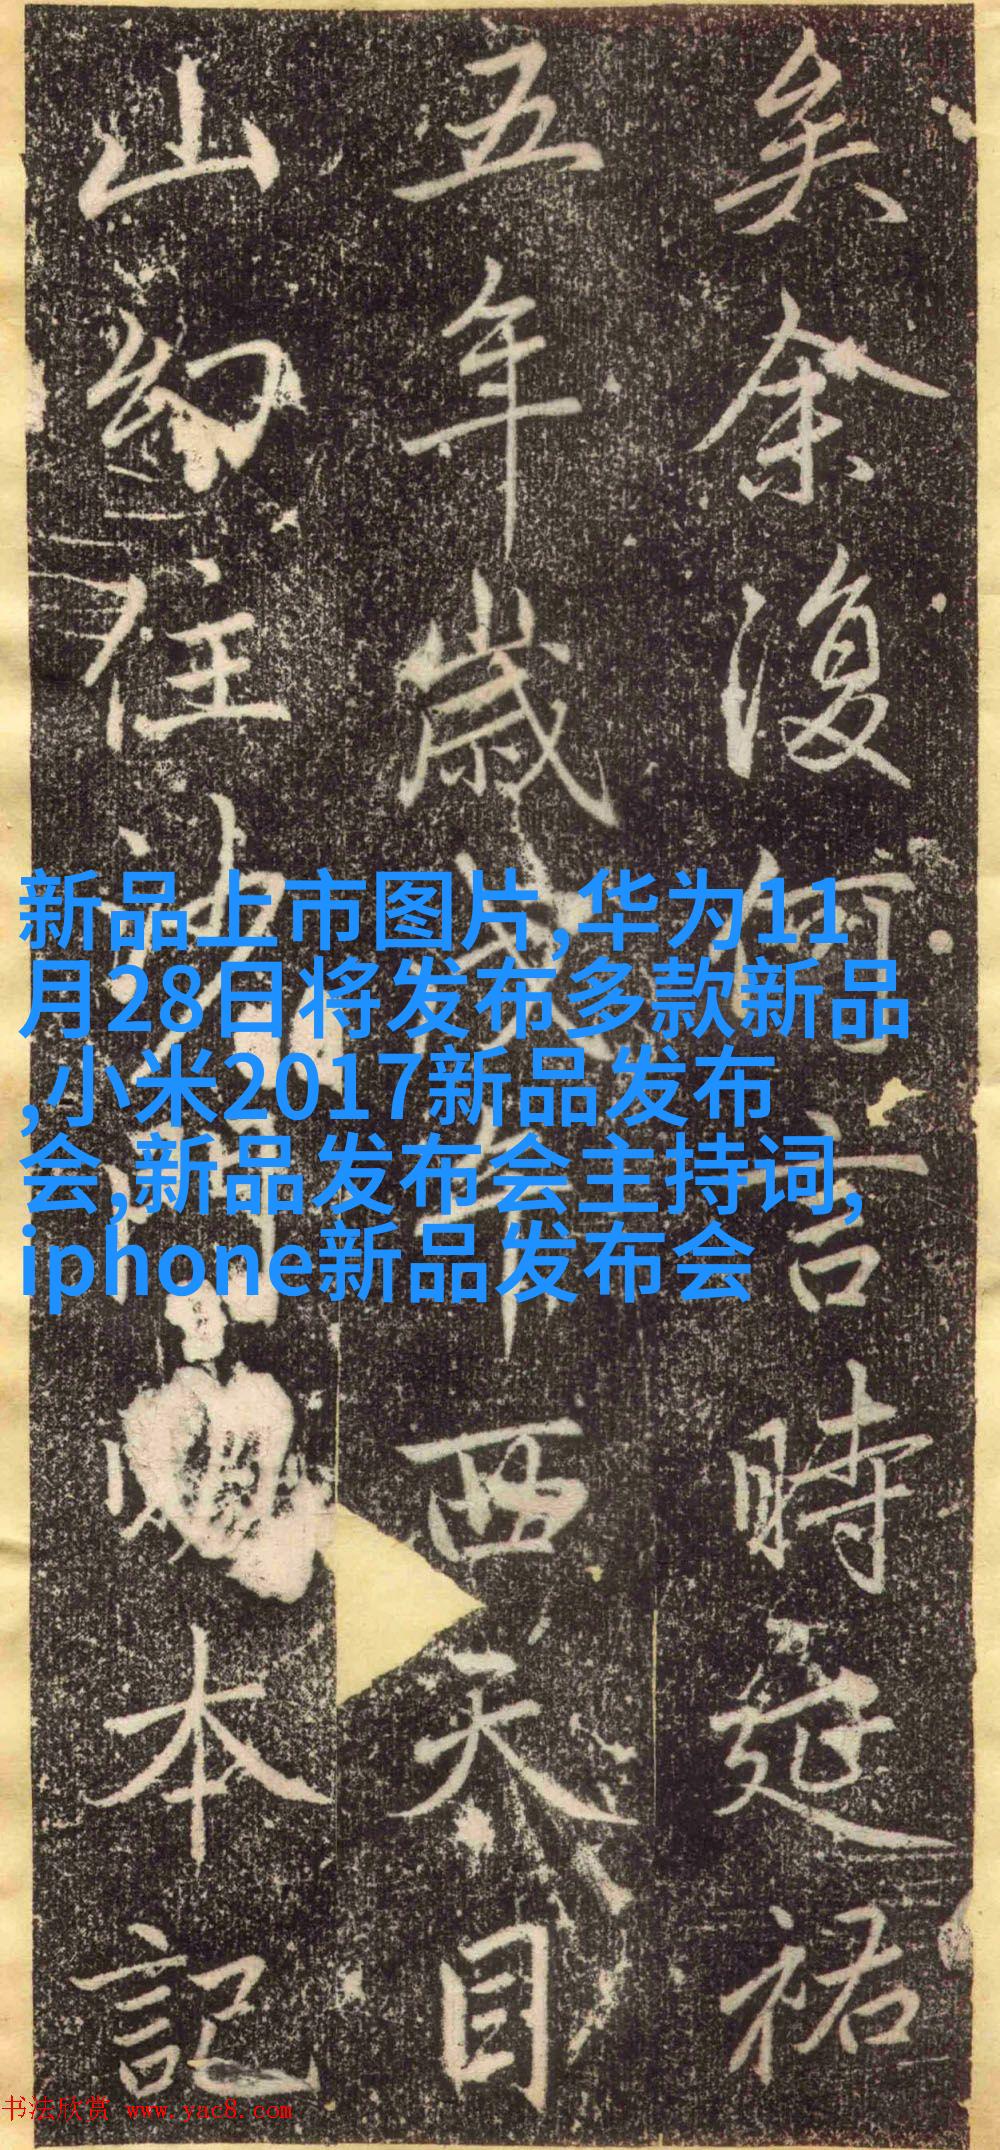 矣余復何言時延祐
五年歲戊午西天目
山幻住沙本記
新品上市图片,华为11
月28日将发布多款新品
,小米2017新品发布
会,新品发布会主持词,
iphone新品发布会
书法欣赏 www.yac8.com